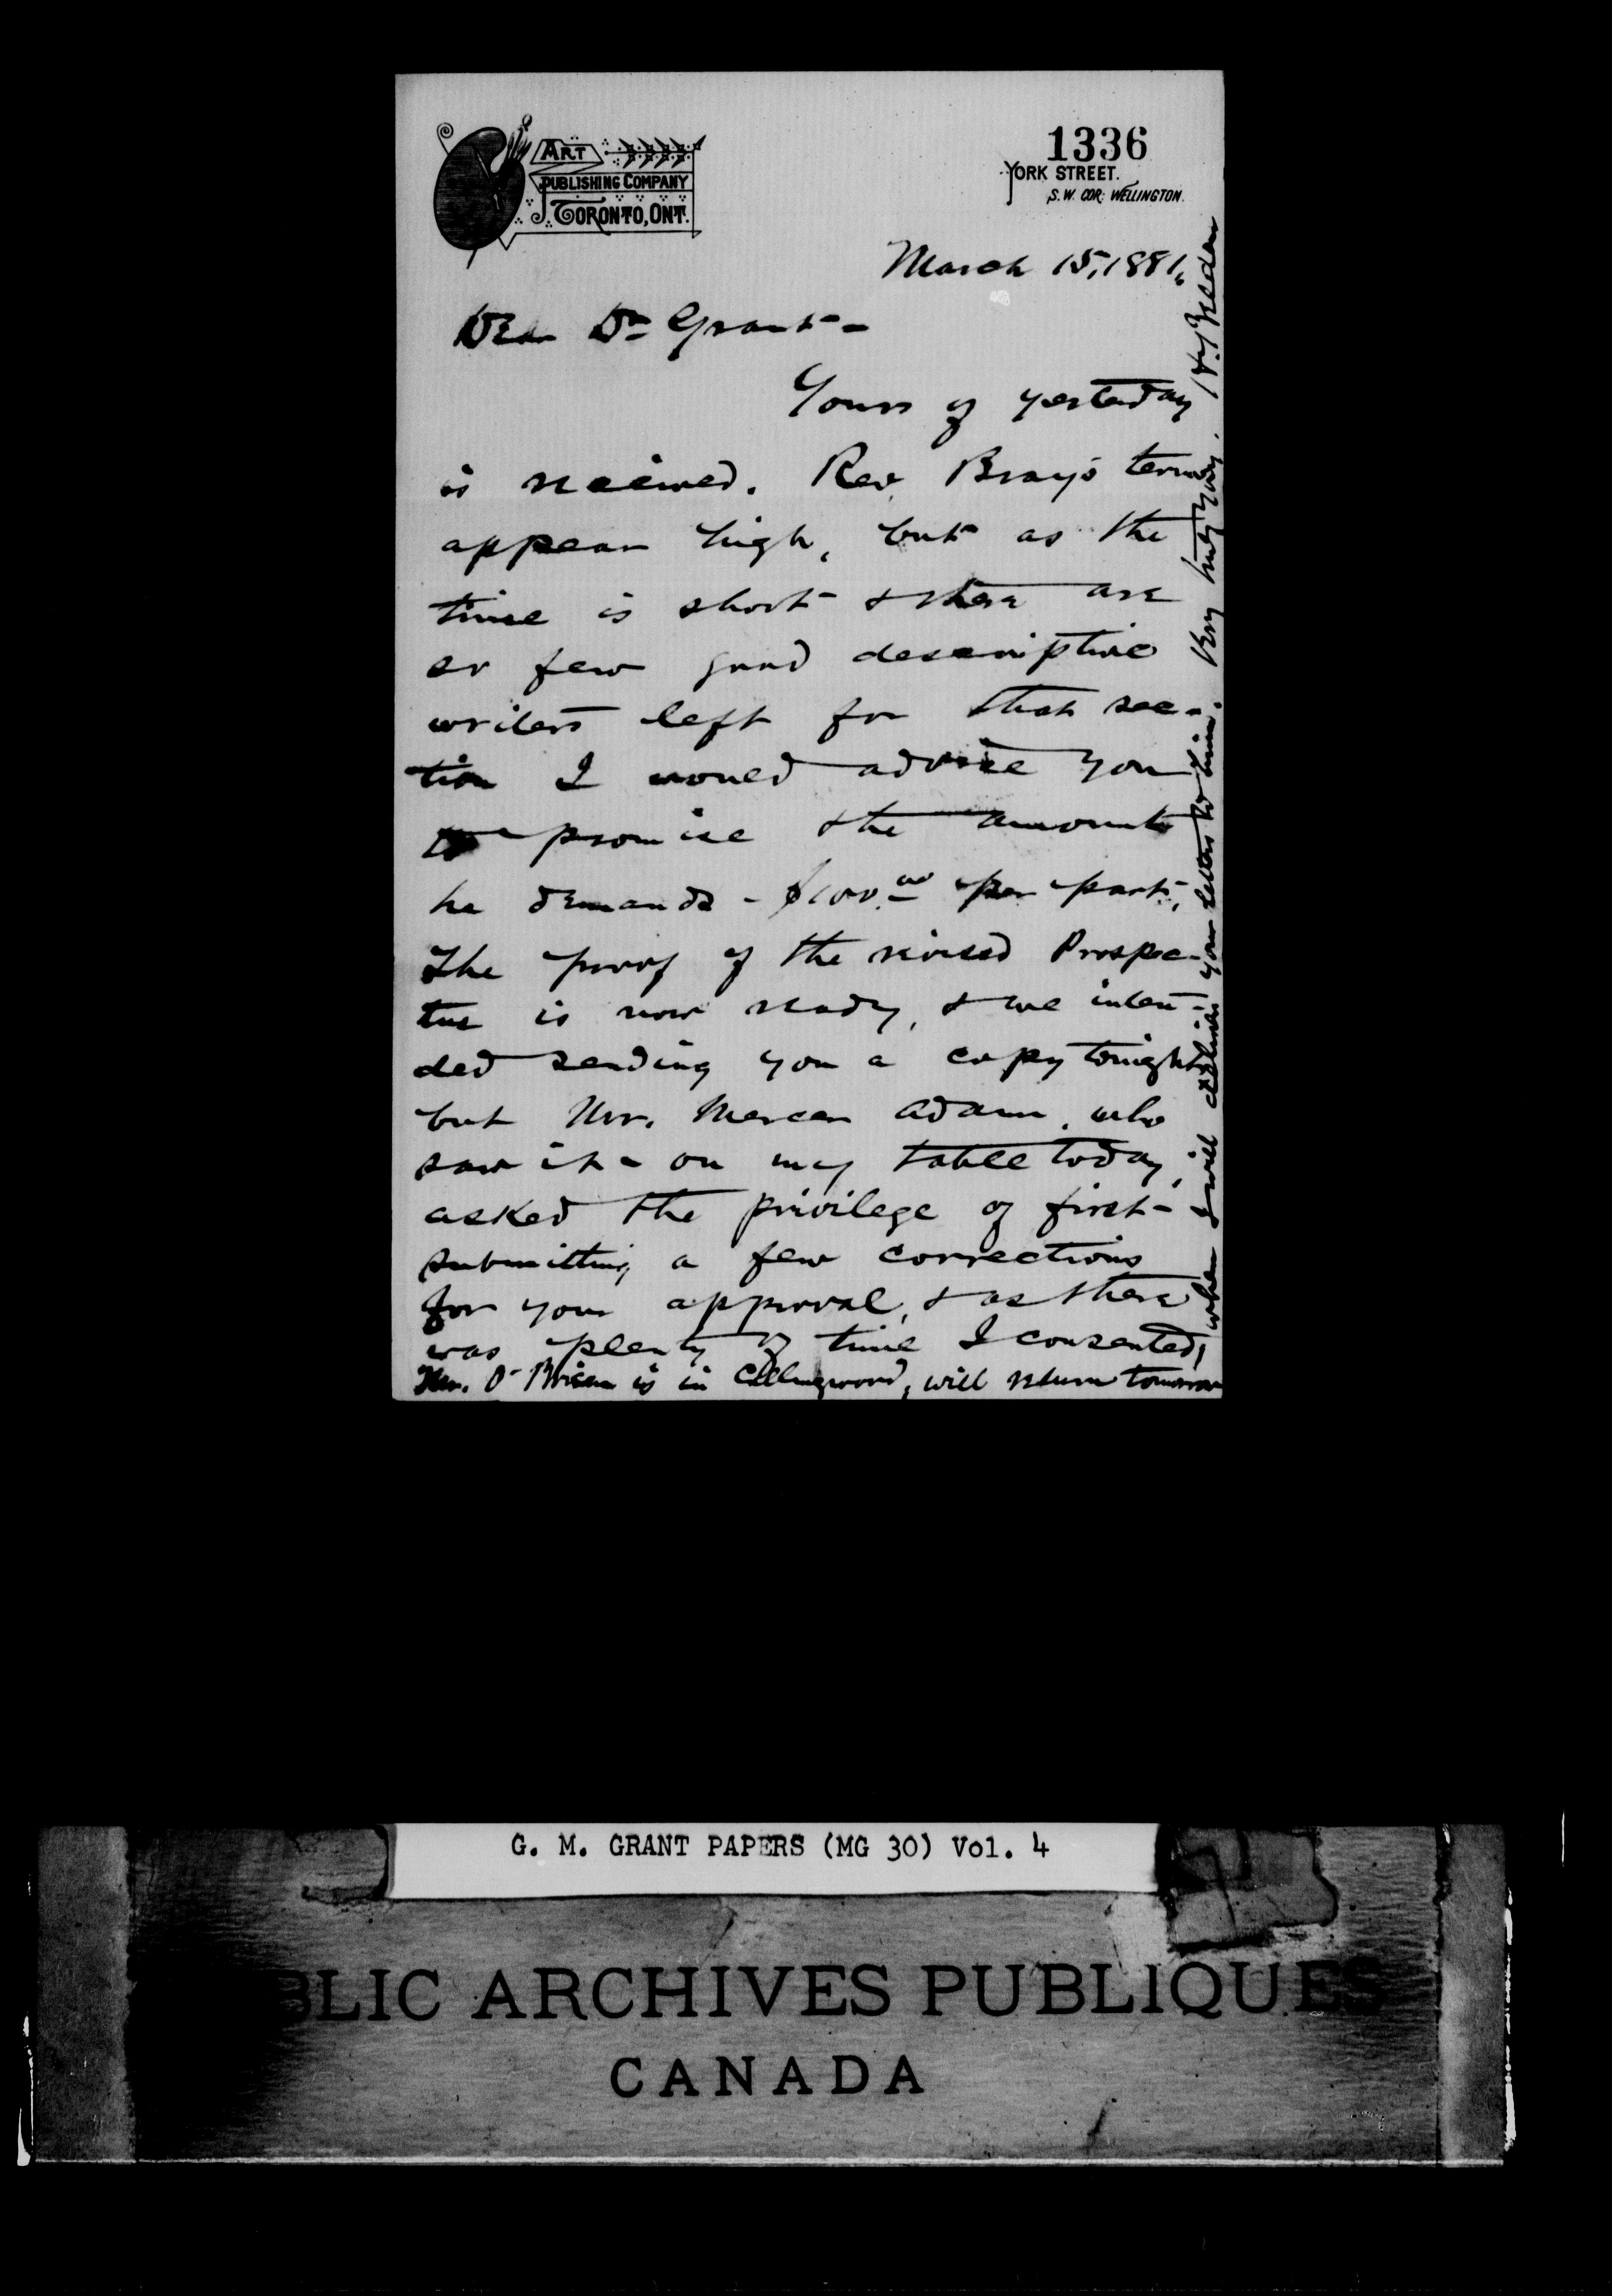 ART
PUBLISHING COMPANY
TORONTO, ONT.
1336
YORK STREET.
S.W. COR: WELLINGTON.
March 15, 1881.
Dear Dr Grant -
Yours of yesterday
is received. Rev. Bray's terms
appear high, but as the
time is short & there are
so few good descriptive
writers left for that sec-
tion I would advise you
to promise the amount
he demands - $100.00 per part.
The proof of the revised Prospec-
tus is now ready, & we inten-
ded sending you a copy tonight
but Mr. Mercer Adam, who
saw it on my table today,
asked the privilege of first
submitting a few corrections
for your approval, & as there
was plenty of time I consented,
Mr. O'Brien is in Collingwood, will return tomorrow
when I will deliver your letter to him. Very truly yours,
G. M. GRANT PAPERS (MG 30) Vol. 4
BLIC ARCHIVES PUBLIQUES
CANADA